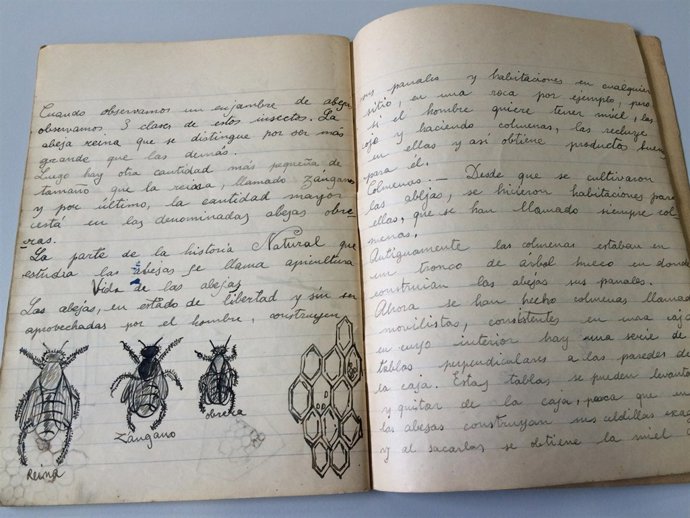 Cuando observamos un enjambre de abejas
observamos 3 clases de estos insectos. La
abeja reina que se distingue por ser más
grande que las demás.
Luego hay otra cantidad más pequeña de
tamaño que la reina, llamado Zángano
y por último, la cantidad mayor
está en las denominadas abejas obre
ras.
La parte de la historia Natural que
estudia las abejas se llama apicultura
Vida de las abejas
Las abejas, en estado de libertad y sin ser
aprovechadas por el hombre, construyen
Reina
Zangano
obrera
sus panales y habitaciones en cualquier
sitio, en una roca por ejemplo, pero
si el hombre quiere tener miel, las
coje y haciendo colmenas, las recluye
en ellas y así obtiene productos buenos
para él.
Colmenas.- Desde que se cultivaron
las abejas, se hicieron habitaciones para
ellas, que se han llamado siempre col
menas.
Antiguamente las colmenas estaban en
un tronco de árbol hueco en donde
construían las abejas sus panales.
Ahora se han hecho colmenas llamadas
movilistas, consistentes en una caja
en cuyo interior hay una serie de
tablas perpendiculares a las paredes de
la caja. Estas tablas se pueden levantar
y quitar de la caja, para que en
las abejas construyan sus celdillas
y al sacarlas se obtiene la miel